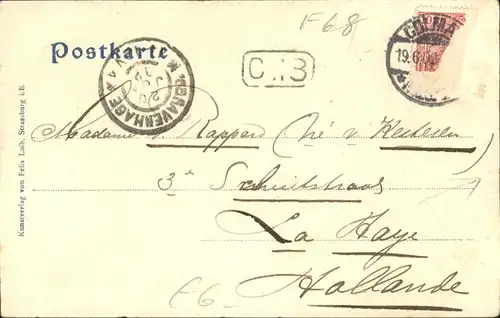 F 68
Postkarte
COLMA
19.6.
'S GRAVENHAGE
C..B
Madame v Rappard (né v Kesteren
3 Schuitstraat
La Haye
Hollande
F6-
Kunstverlag von Felix Luib, Strassburg i.E.